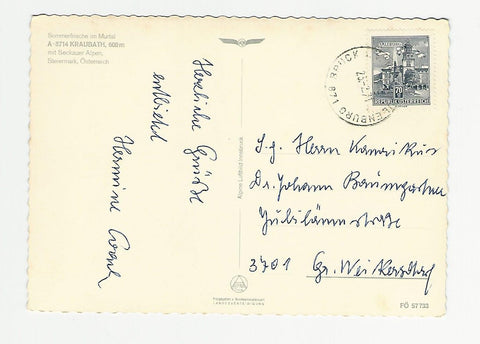 Sommerfrische im Murtal
A-8714 KRAUBATH, 600 m
mit Seckauer Alpen,
Steiermark, Österreich
Herzliche Grüße
entbietet
Hermine
Alpine Luftbild Innsbruck
70
REPUBLIK ÖSTERREICH
BRUCK
S.g. Herrn Kanonikus
Dr. Johann Baumgartner
Jubiläumstraße
3701 Gr. Weikersdorf
FÖ 57733